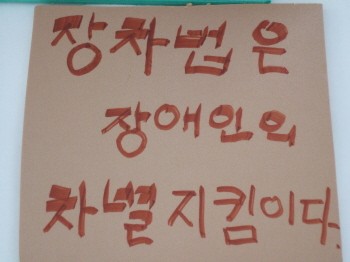 장차법은
장애인의
차별지킴이다.